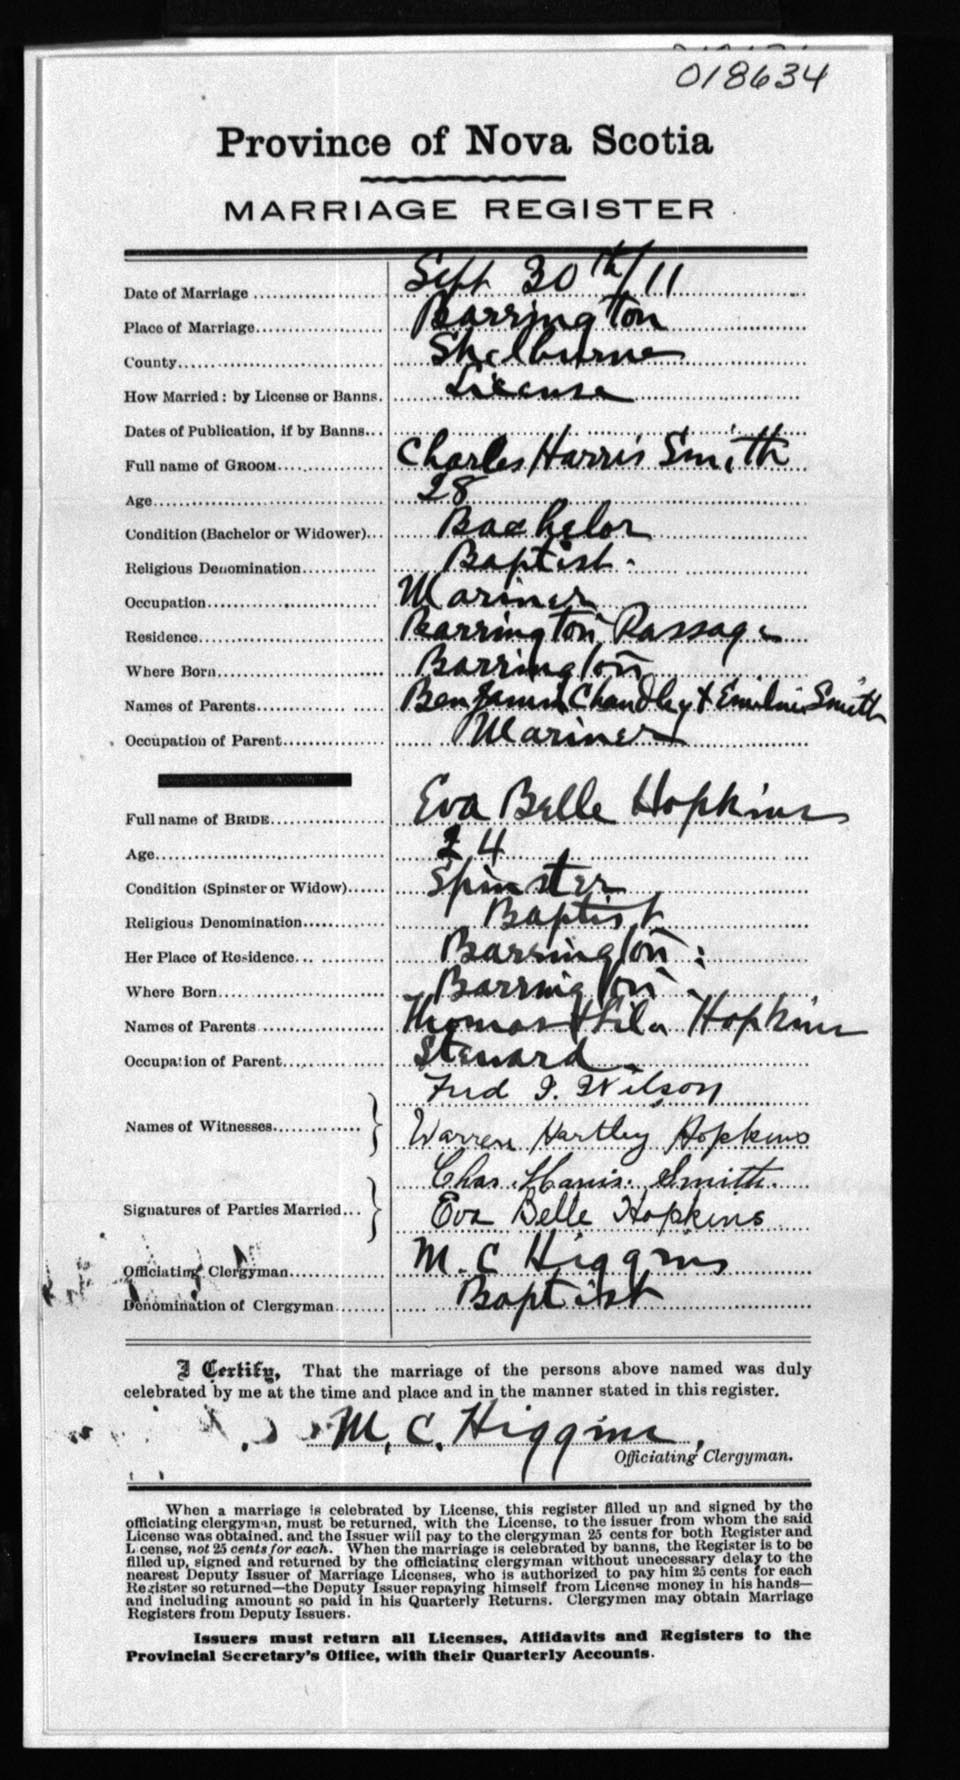 018634
Province of Nova Scotia
MARRIAGE REGISTER
Date of Marriage Sept 30th/11
Place of Marriage Barrington
County Shelburne
How Married: by License or Banns. License
Dates of Publication, if by Banns
Full name of GROOM Charles Harris Smith
Age 28
Condition (Bachelor or Widower) Bachelor
Religious Denomination Baptist.
Occupation Mariner
Residence Barrington Passage
Where Born Barrington
Names of Parents Benjamin Chandley & Smith
Occupation of Parent Mariner
Full name of BRIDE Eva Belle Hopkins
Age 24
Condition (Spinster or Widow) Spinster
Religious Denomination Baptist
Her Place of Residence Barrington
Where Born Barrington
Names of Parents Thomas & Hopkins
Occupation of Parent Steward
Names of Witnesses Fred I. Wilson
Warren Hartley Hopkins
Signatures of Parties Married Chas. Harris. Smith.
Eva Belle Hopkins
Officiating Clergyman M. C Higgins
Denomination of Clergyman Baptist
I Certify, That the marriage of the persons above named was duly
celebrated by me at the time and place and in the manner stated in this register.
M. C. Higgins,
Officiating Clergyman.
When a marriage is celebrated by License, this register filled up and signed by the
officiating clergyman, must be returned, with the License, to the issuer from whom the said
License was obtained. and the Issuer will pay to the clergyman 25 cents for both Register and
License, not 25 cents for each. When the marriage is celebrated by banns, the Register is to be
filled up, signed and returned by the officiating clergyman without unecessary delay to the
nearest Deputy Issuer of Marriage Licenses, who is authorized to pay him 25 cents for each
Register so returned—the Deputy Issuer repaying himself from License money in his hands—
and including amount so paid in his Quarterly Returns. Clergymen may obtain Marriage
Registers from Deputy Issuers.
Issuers must return all Licenses, Affidavits and Registers to the
Provincial Secretary's Office, with their Quarterly Accounts.